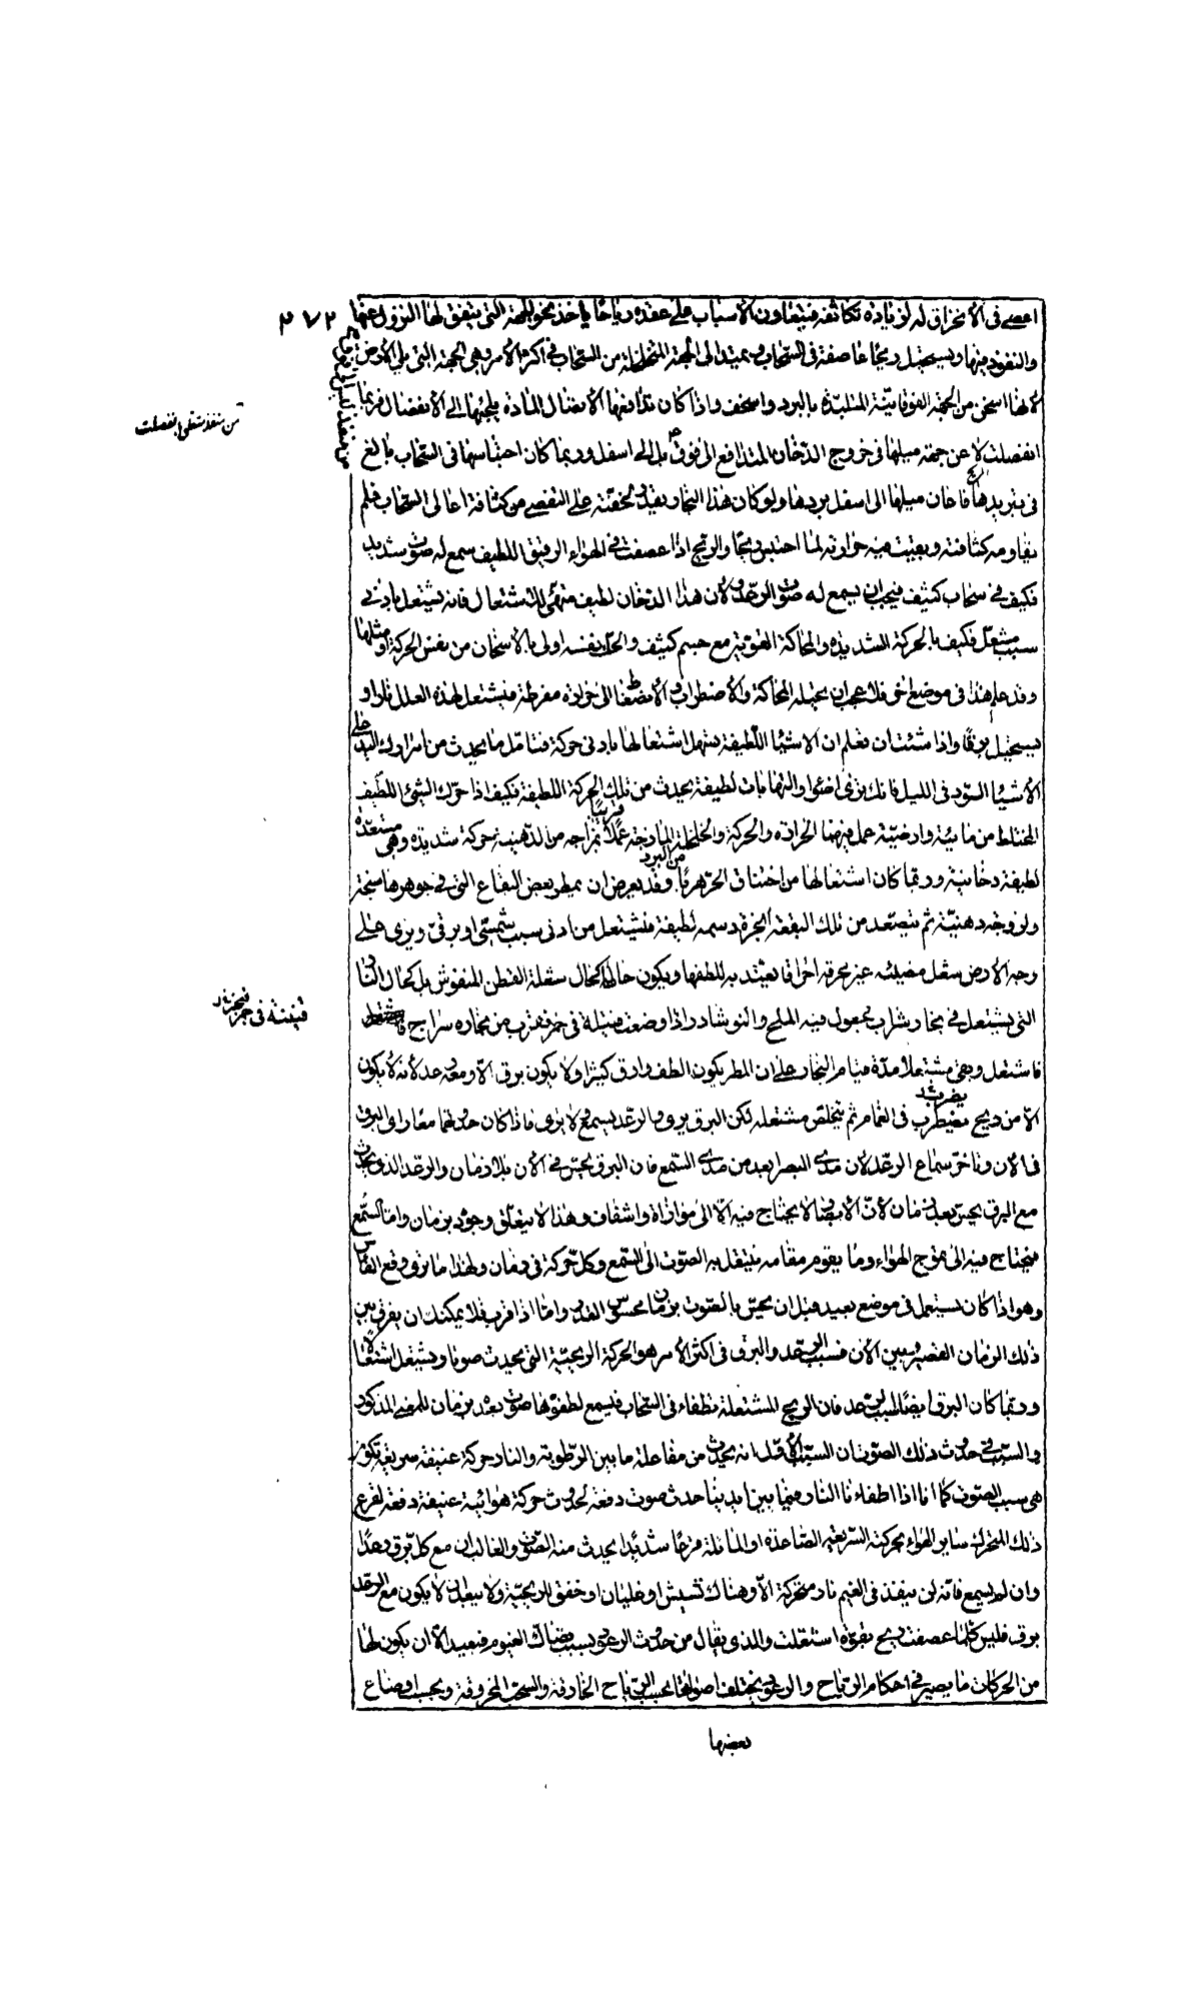 اعصى فى الانخراق له لزيادة تكاثفه فيتعاون الاسباب على عقده رياحا يأخذ نحو الجهة التى يتفق لها النزول عنها
٢٧٢
والنفوذ فيها ويستحيل ريحا عاصفة فى السحاب ويمتد الى الجهة المتخلخلة من السحاب فى اكثر الامر وهى الجهة التى يلى الارض
لانها اسخن من الجهة الفوقانية المتلبدة بالبرد واسخف واذا كان تدافعها الاتصال المادة يلجئها الى الانفصال فربما
من منفذ
من منفذ شظى انفصلت
انفصلت لا عن جهة ميلها فى خروج الدخان المتدافع الى فوق بل الى اسفل وربما كان احتباسها فى السحاب بالغ
فى تبريدها فاعان ميلها الى اسفل بردها ولو كان هذا البخار يقدر لخفته على التفصى من كثافة اعالى السحاب فلم
يقاومه كثافته وبقيت فيه حرارته لما احتبس ريحا والريح اذا عصفت فى الهواء الرقيق اللطيف سمع له صوت شديد
فكيف فى سحاب كثيف فيجب ان يسمع له صوت الرعد ولان هذا الدخان لطيف متهيئ للاشتعال فانه يشتعل بادنى
سبب مشعل فكيف بالحركة الشديدة والمحاكة القوية مع جسم كثيف والحك نفسه اولى بالاسخان من نفس الحركة او مثلها
وقد علم هذا فى موضع اخر فلا عجب ان يحيله المحاكة والاضطراب والانضغاط الى حرارة مفرطة فيشتعل لهذه العلل نارا و
يستحيل برقا واذا شئت ان تعلم ان الاشياء اللطيفة يسهل اشتعالها بادنى حركة فتامل ما يحدث من امرارك اليد على
الاشياء السود فى الليل فانك ترى اضواء والتهابات لطيفة يحدث من تلك الحركة اللطيفة فكيف اذا حرك الشئ اللطيف
المختلط من مائية وارضية عمل فيهما الحرارة والحركة والخلخلة المازجة عملا قريبا بمزاجه من الدهنية حركة شديدة وهى مستعدة
لطيفة دخانية وربما كان اشتعالها من اختناق الحر هربا من البرد وقد يعرض ان يمطر بعض البقاع التى فى جوهرها سبخة
ولزوجة دهنية ثم يتصعد من تلك البقعة ابخرة دسمة لطيفة فيشتعل من ادنى سبب شمسى او برقى ويرى على
وجه الارض شعل مضيئة غير محرقة احراقا يعتد به للطفها ويكون حالها كحال شعلة القطن المنفوش بل كحال النار
التى يشتعل فى بخار شراب مجعول فيه الملح والنوشادر اذا وضعت فتيلة فى جمر فقرب من بخاره سراج
قنينة فى جمر فيخر
فاشتعل وبقى مشتعلا مدة قيام البخار على ان المطر يكون الطف وارق كثيرا ولا يكون برق الا ومعه رعد لانه لا يكون
الا من ريح يضطرب فى الغمام ثم يتخلص مشتعلة لكن البرق يرى والرعد يسمع ولا يرى فاذا كان حدوثهما معا راى البرق
فى الان وتاخر سماع الرعد لان مدى البصر ابعد من مدى السمع فان البرق يحس فى الان بلا زمان والرعد الذى يحدث
مع البرق يحس بعد زمان لان الابصار لا يحتاج فيه الا الى موازاة واشفاف وهذا لا يتعلق وجوده بزمان واما السمع
فيحتاج فيه الى تموج الهواء وما يقوم مقامه فينتقل به الصوت الى السمع وكل حركة فى زمان ولهذا ما نرى وقع الفاس
وهو اذا كان يستعمل فى موضع بعيد قبل ان يحس بالصوت بزمان محسوس القدر واما اذا قرب فلا يمكنك ان يفرق بين
ذلك الزمان القصير وبين الان فسبب الرعد والبرق فى اكثر الامر هو الحركة الريحية التى يحدث صوتا ويشتعل اشتعالا
وربما كان البرق ايضا سبب الرعد فان الريح المشتعلة تطفاء فى السحاب فيسمع لطفوها صوت بعد بزمان للمعنى المذكور
والسبب فى حدوث ذلك الصوت ان السبب الاول انه يحدث من مفاعلة ما بين الرطوبة والنار حركة عنيفة سريعة تكون
هى سبب الصوت كما انا اذا اطفاءنا النار فيما بين ايدينا حدث صوت دفعة لحدوث حركة هوائية عنيفة دفعة لقرع
ذلك المتحرك سائر الهواء بحركته السريعة الصاعدة او المائلة قرعا شديدا يحدث منه الصوت والغالب ان مع كل برق رعدا
وان لم يسمع فانه لن ينفذ فى الغيم نار متحركة الا وهناك نشيش او غليان او خفق للريحية ولا يبعد ان لا يكون مع الرعد
برق فليس كلما عصفت ريح بقوة اشتعلت والذى يقال من حدوث الرعود بسبب تصاك الغيوم فبعيد الا ان يكون لها
من الحركات ما يصير فى احكام الرياح والرعود يختلف اصواتها بحسب الرياح الخارقة والسحب المخروقة وبحسب اوضاع
بعضها